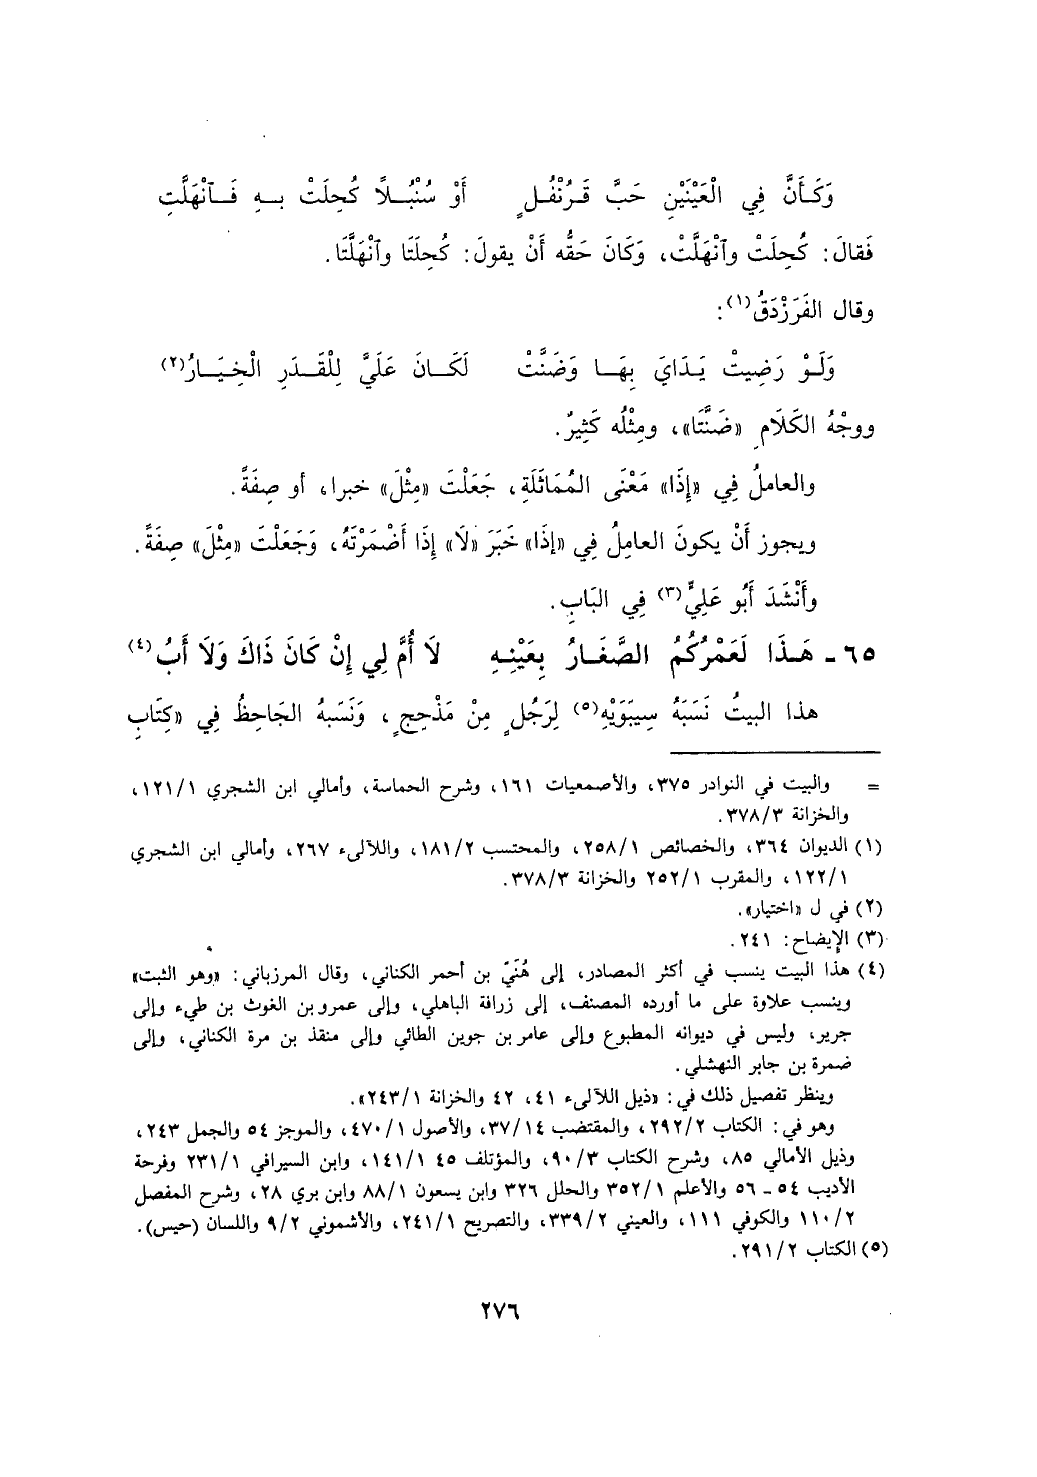 وَكَأَنَّ فِي الْعَيْنَيْنِ حَبَّ قَـرُنْفُـلٍ أَوْ سُنْبُـلاً كُحِلَتْ بِـهِ فَـانْهَلَّتِ
فَقالَ: كُحِلَتْ وٱنْهَلَّتْ، وَكَانَ حَقُّه أَنْ يقولَ: كُحِلَتَا وٱنْهَلَّتَا.
وقال الفَرَزْدَقُ(١):
وَلَـوْ رَضِيتْ يَـدَايَ بِهَـا وَضَنَّتْ لَكَـانَ عَلَيَّ لِلْقَـدَرِ الْخِيَـارُ(٢)
ووجْهُ الكَلَامِ «ضَنَّتَا»، ومِثْلُه كَثِيرٌ.
والعاملُ فِي «إِذَا» مَعْنَى المُمَاثَلَةِ، جَعَلْتَ «مِثْلَ» خبرا، أو صِفَةً.
ويجوز أَنْ يكونَ العامِلُ فِي «إِذَا» خَبَرَ «لَا» إِذَا أَضْمَرْتَهُ، وَجَعَلْتَ «مِثْلَ» صِفَةً.
وأَنْشَدَ أَبُو عَلِيٍّ(٣) فِي البَابِ.
٦٥ - هَـذَا لَعَمْرُكُمُ الصَّغَـارُ بِعَيْنِـهِ لَا أُمَّ لِي إِنْ كَانَ ذَاكَ وَلَا أَبُ(٤)
هذا البيتُ نَسَبَهُ سِيبَوَيْهِ(٥) لِرَجُلٍ مِنْ مَذْحِجٍ، وَنَسَبهُ الجَاحِظُ فِي «كِتَابِ
= والبيت في النوادر ٣٧٥، والأصمعيات ١٦١، وشرح الحماسة، وأمالي ابن الشجري ١٢١/١،
والخزانة ٣٧٨/٣.
(١) الديوان ٣٦٤، والخصائص ٢٥٨/١، والمحتسب ١٨١/٢، واللآلىء ٢٦٧، وأمالي ابن الشجري
١٢٢/١، والمقرب ٢٥٢/١ والخزانة ٣٧٨/٣.
(٢) في ل «اختيار».
(٣) الإيضاح: ٢٤١.
(٤) هذا البيت ينسب في أكثر المصادر، إلى هُنَيّ بن أحمر الكناني، وقال المرزباني: «وهو الثبت»
وينسب علاوة على ما أورده المصنف، إلى زرافة الباهلي، وإلى عمرو بن الغوث بن طيء وإلى
جرير، وليس في ديوانه المطبوع وإلى عامر بن جوين الطائي وإلى منقذ بن مرة الكناني، وإلى
ضمرة بن جابر النهشلي.
وينظر تفصيل ذلك في: «ذيل اللآلىء ٤١، ٤٢ والخزانة ٢٤٣/١».
وهو في: الكتاب ٢٩٢/٢، والمقتضب ٣٧/١٤، والأصول ٤٧٠/١، والموجز ٥٤ والجمل ٢٤٣،
وذيل الأمالي ٨٥، وشرح الكتاب ٩٠/٣، والمؤتلف ٤٥ ١٤١/١، وابن السيرافي ٢٣١/١ وفرحة
الأديب ٥٤ - ٥٦ والأعلم ٣٥٢/١ والحلل ٣٢٦ وابن يسعون ٨٨/١ وابن بري ٢٨، وشرح المفصل
١١٠/٢ والكوفي ١١١، والعيني ٣٣٩/٢، والتصريح ٢٤١/١، والأشموني ٩/٢ واللسان (حيس).
(٥) الكتاب ٢٩١/٢.
٢٧٦